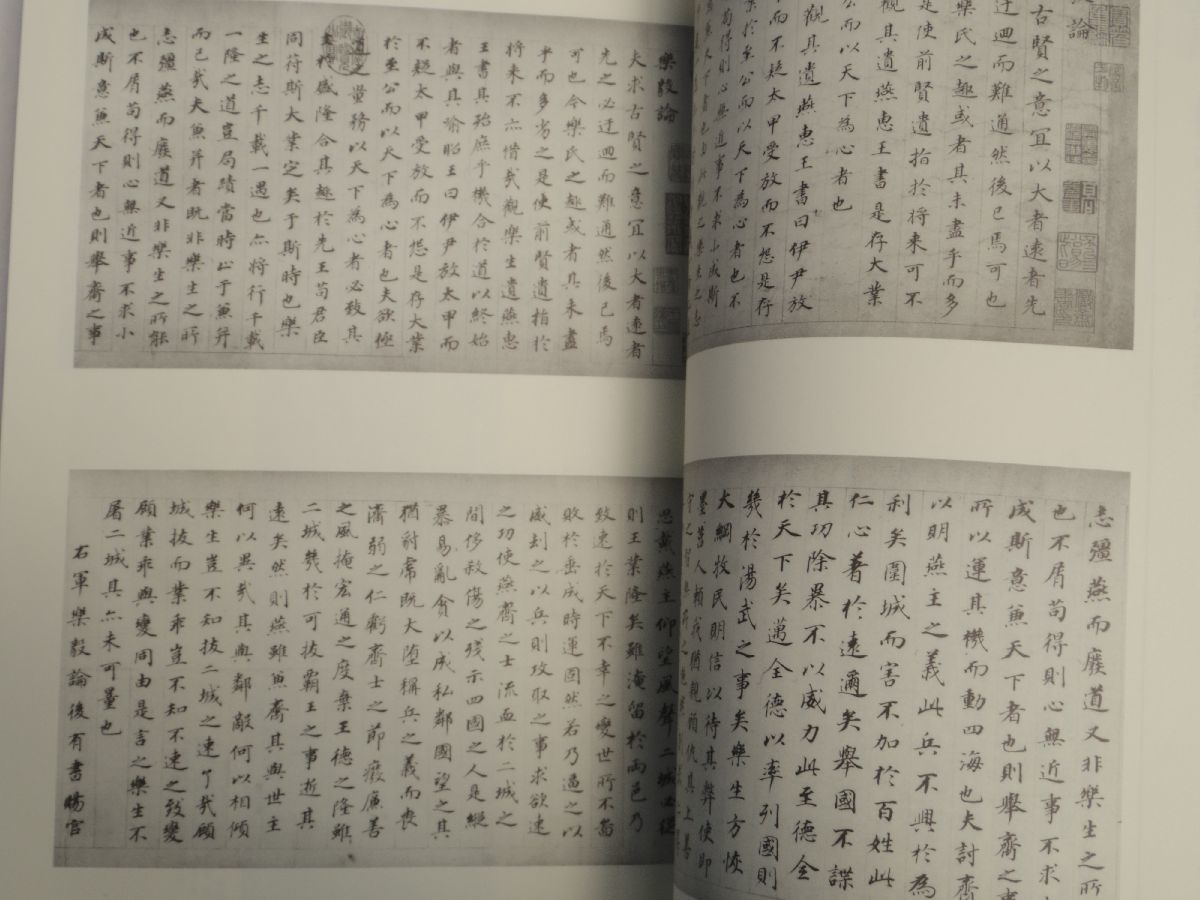 論
古賢之意宜以大者遠者先
迂迴而難通然後已焉可也
樂氏之趣或者其未盡乎而多
是使前賢遺指於將來可不
觀其遺燕惠王書是存大業
公而以天下為心者也
觀其遺燕惠王書曰伊尹放
而不疑太甲受放而不怨是存
於至公而以天下為心者也不
苟得則心無近事不求小成斯
樂毅論
夫求古賢之意宜以大者遠者
先之必迂迴而難通然後已焉
可也今樂氏之趣或者其未盡
乎而多劣之是使前賢遺指於
將來不亦惜哉觀樂生遺燕惠
王書其殆庶乎機合於道以終始
者與其喻昭王曰伊尹放太甲而
不疑太甲受放而不怨是存大業
於至公而以天下為心者也夫欲極
道之量務以天下為心者必致其
主於盛隆合其趣於先王苟君臣
同符斯大業定矣于斯時也樂
生之志千載一遇也亦將行千載
一隆之道豈局蹟當時止于兼并
而已哉夫兼并者既非樂生之所
志彊燕而廢道又非樂生之所能
也不屑苟得則心無近事不求小
成斯意兼天下者也則舉齊之事
志彊燕而廢道又非樂生之所
也不屑苟得則心無近事不求
成斯意兼天下者也則舉齊之事
所以運其機而動四海也夫討齊
以明燕主之義此兵不興於為
利矣圍城而害不加於百姓此
仁心著於遠邇矣舉國不謀
其功除暴不以威力此至德全
於天下矣邁全德以率列國則
幾於湯武之事矣樂生方恢
大綱牧民明信以待其弊使即
墨莒人顧仇其上
思戴燕主仰望風聲二城必從
則王業隆矣雖淹留於兩邑乃
致速於天下不幸之變世所不啚
敗於垂成時運固然若乃逼之以
威刦之以兵則攻取之事求欲速
之功使燕齊之士流血於二城之
間侈殺傷之殘示四國之人是縱
暴易亂貪以成私鄰國望之其
猶豺虎既大墮稱兵之義而喪
濟弱之仁虧齊士之節廢廉善
之風掩宏通之度棄王德之隆雖
二城幾於可拔霸王之事逝其
遠矣然則燕雖兼齊其與世主
何以異哉其與鄰敵何以相傾
樂生豈不知拔二城之速了哉顧
城拔而業乖豈不知不速之致變
顧業乖與變同由是言之樂生不
屠二城其亦未可量也
右軍樂毅論後有書賜官